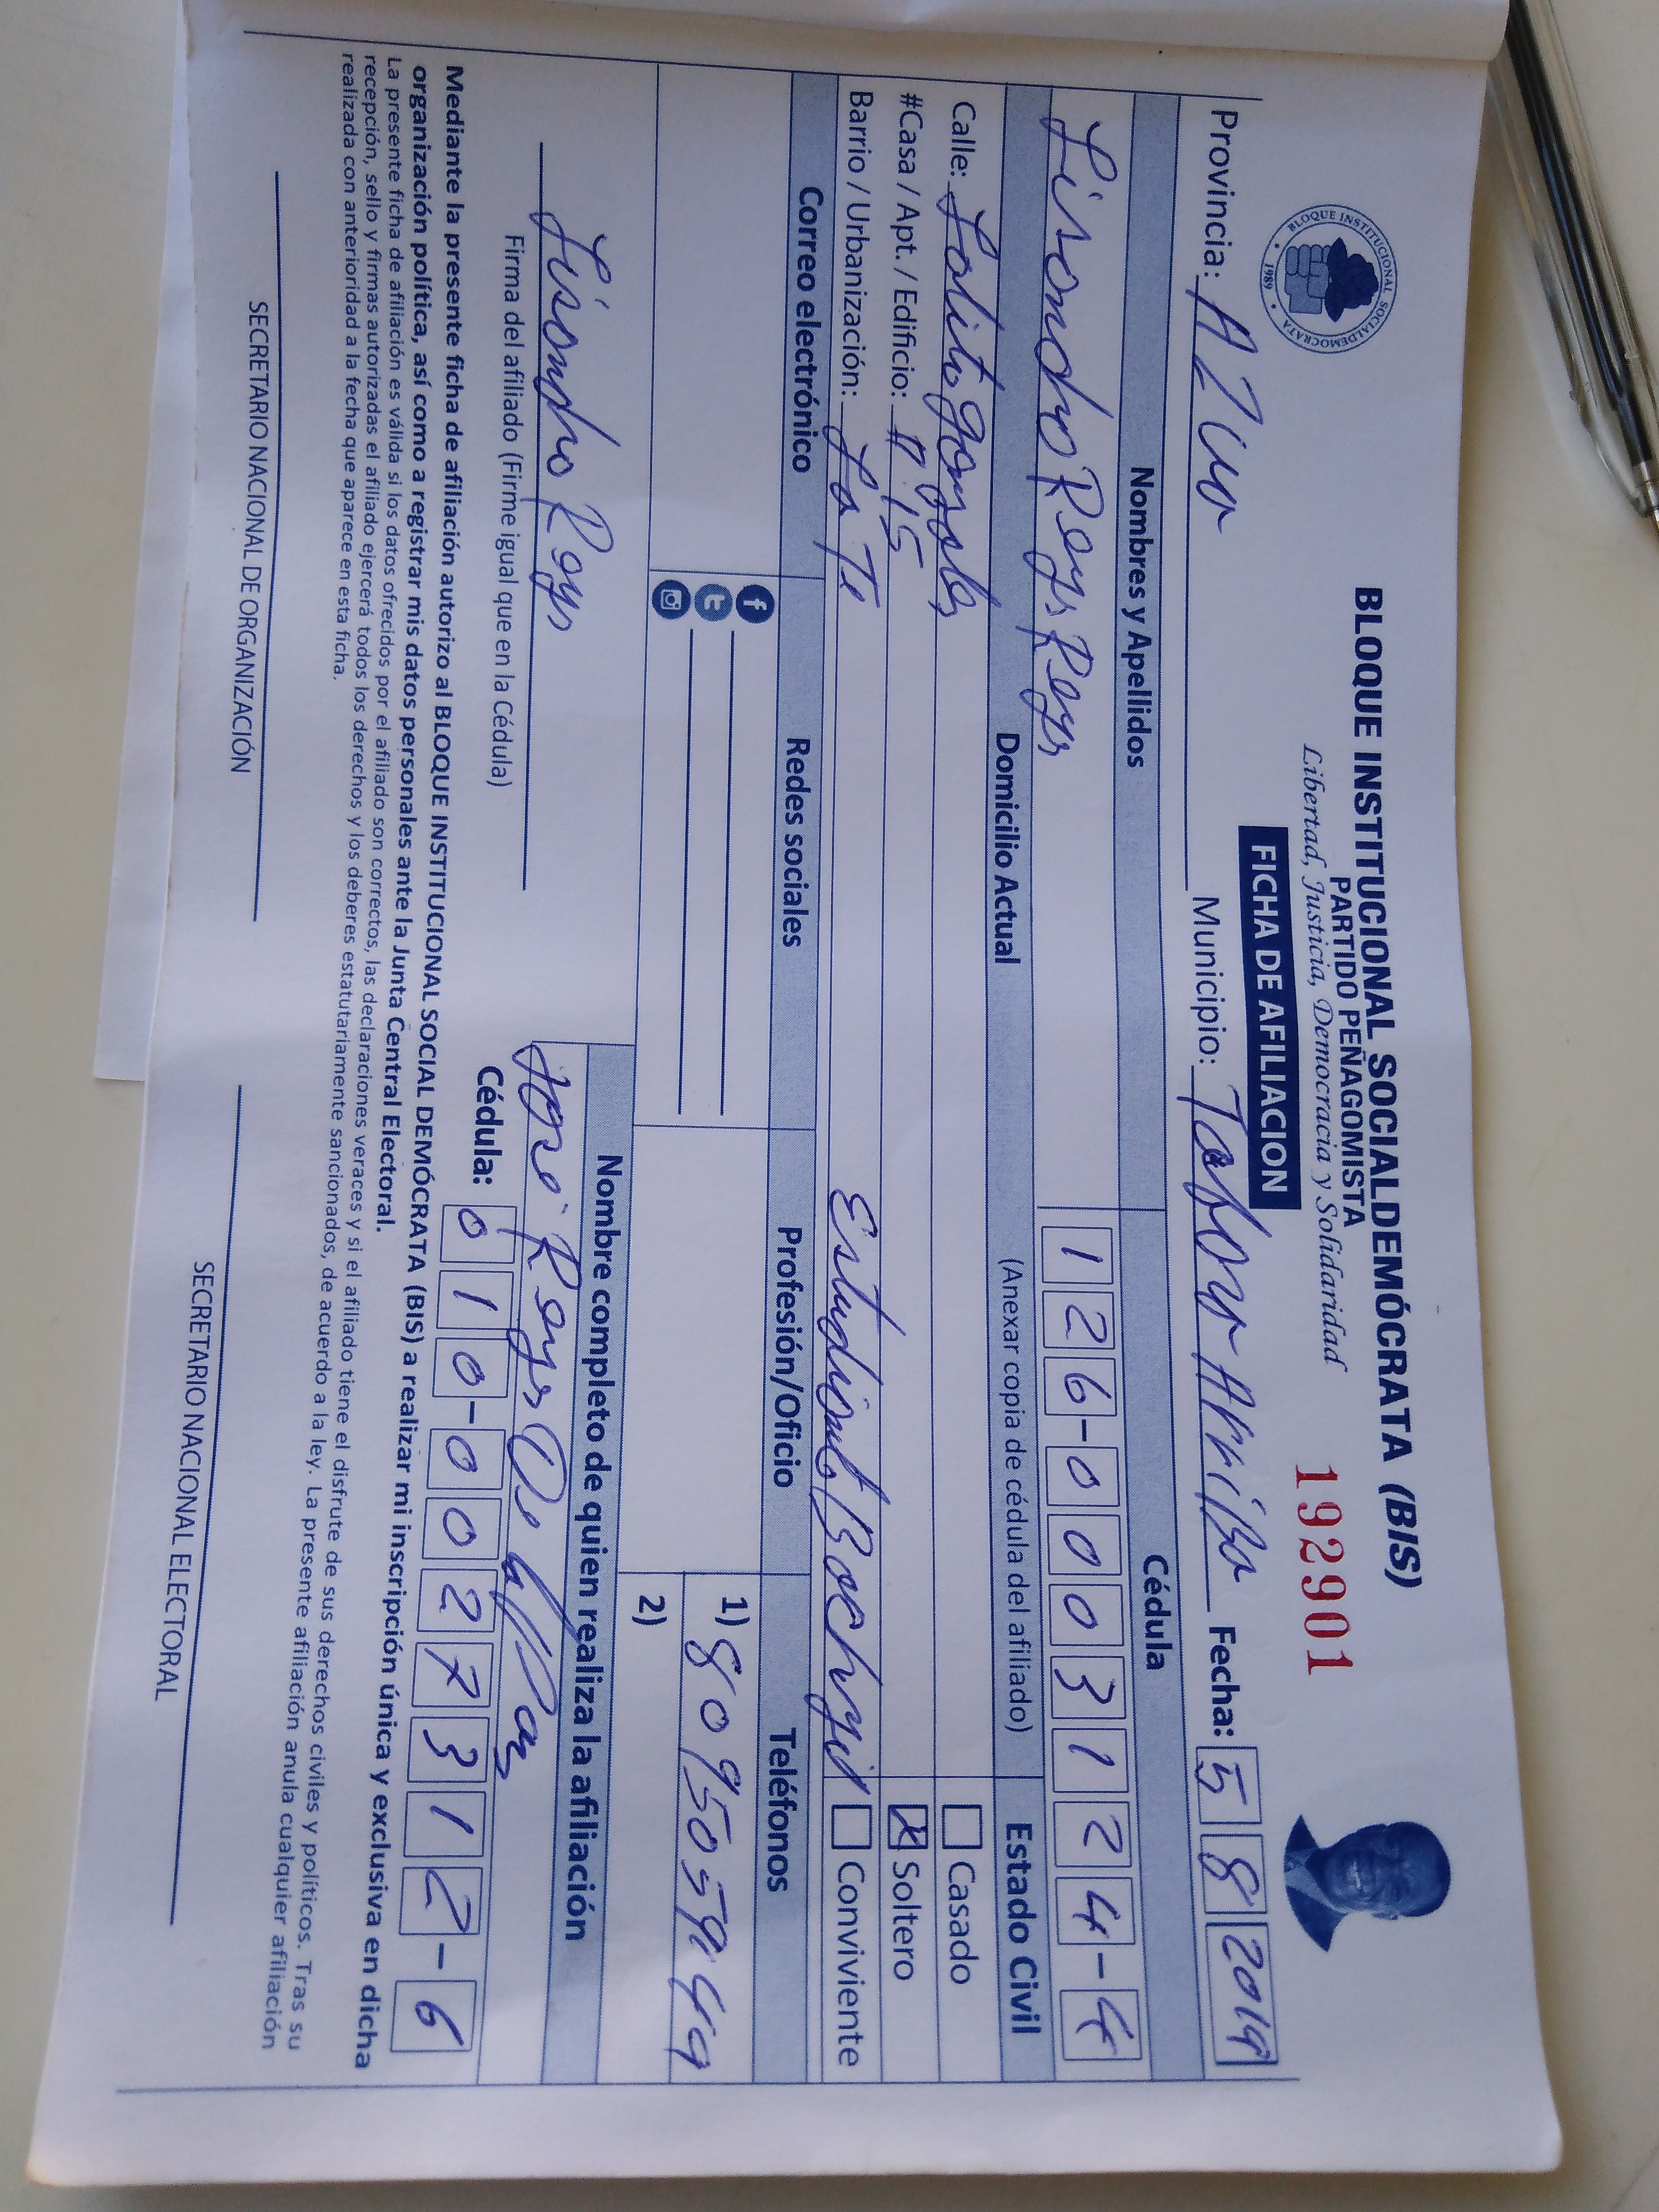 BLOQUE INSTITUCIONAL SOCIALDEMÓCRATA (BIS)
PARTIDO PEÑAGOMISTA
Libertad, Justicia, Democracia y Solidaridad
BLOQUE INSTITUCIONAL SOCIALDEMOCRATA
1989
FICHA DE AFILIACION
192901
Provincia: AZua Municipio: Tabara Arriba Fecha: 5 8 2019
Nombres y Apellidos Cédula
Lisandro Reyes Reyes 126-0003124-4
Domicilio Actual (Anexar copia de cédula del afiliado) Estado Civil
Calle: Gonzales Casado
#Casa / Apt. / Edificio: # 15 X Soltero
Barrio / Urbanización: Estudiante Conviviente
Correo electrónico Redes sociales Profesión/Oficio Teléfonos
1)
2)
Nombre completo de quien realiza la afiliación
Lisandro Reyes José Reyes De la Paz
Firma del afiliado (Firme igual que en la Cédula) Cédula: 010-0027312-6
Mediante la presente ficha de afiliación autorizo al BLOQUE INSTITUCIONAL SOCIAL DEMÓCRATA (BIS) a realizar mi inscripción única y exclusiva en dicha
organización política, así como a registrar mis datos personales ante la Junta Central Electoral.
La presente ficha de afiliación es válida si los datos ofrecidos por el afiliado son correctos, las declaraciones veraces y si el afiliado tiene el disfrute de sus derechos civiles y políticos. Tras su
recepción, sello y firmas autorizadas el afiliado ejercerá todos los derechos y los deberes estatutariamente sancionados, de acuerdo a la ley. La presente afiliación anula cualquier afiliación
realizada con anterioridad a la fecha que aparece en esta ficha.
SECRETARIO NACIONAL DE ORGANIZACIÓN SECRETARIO NACIONAL ELECTORAL